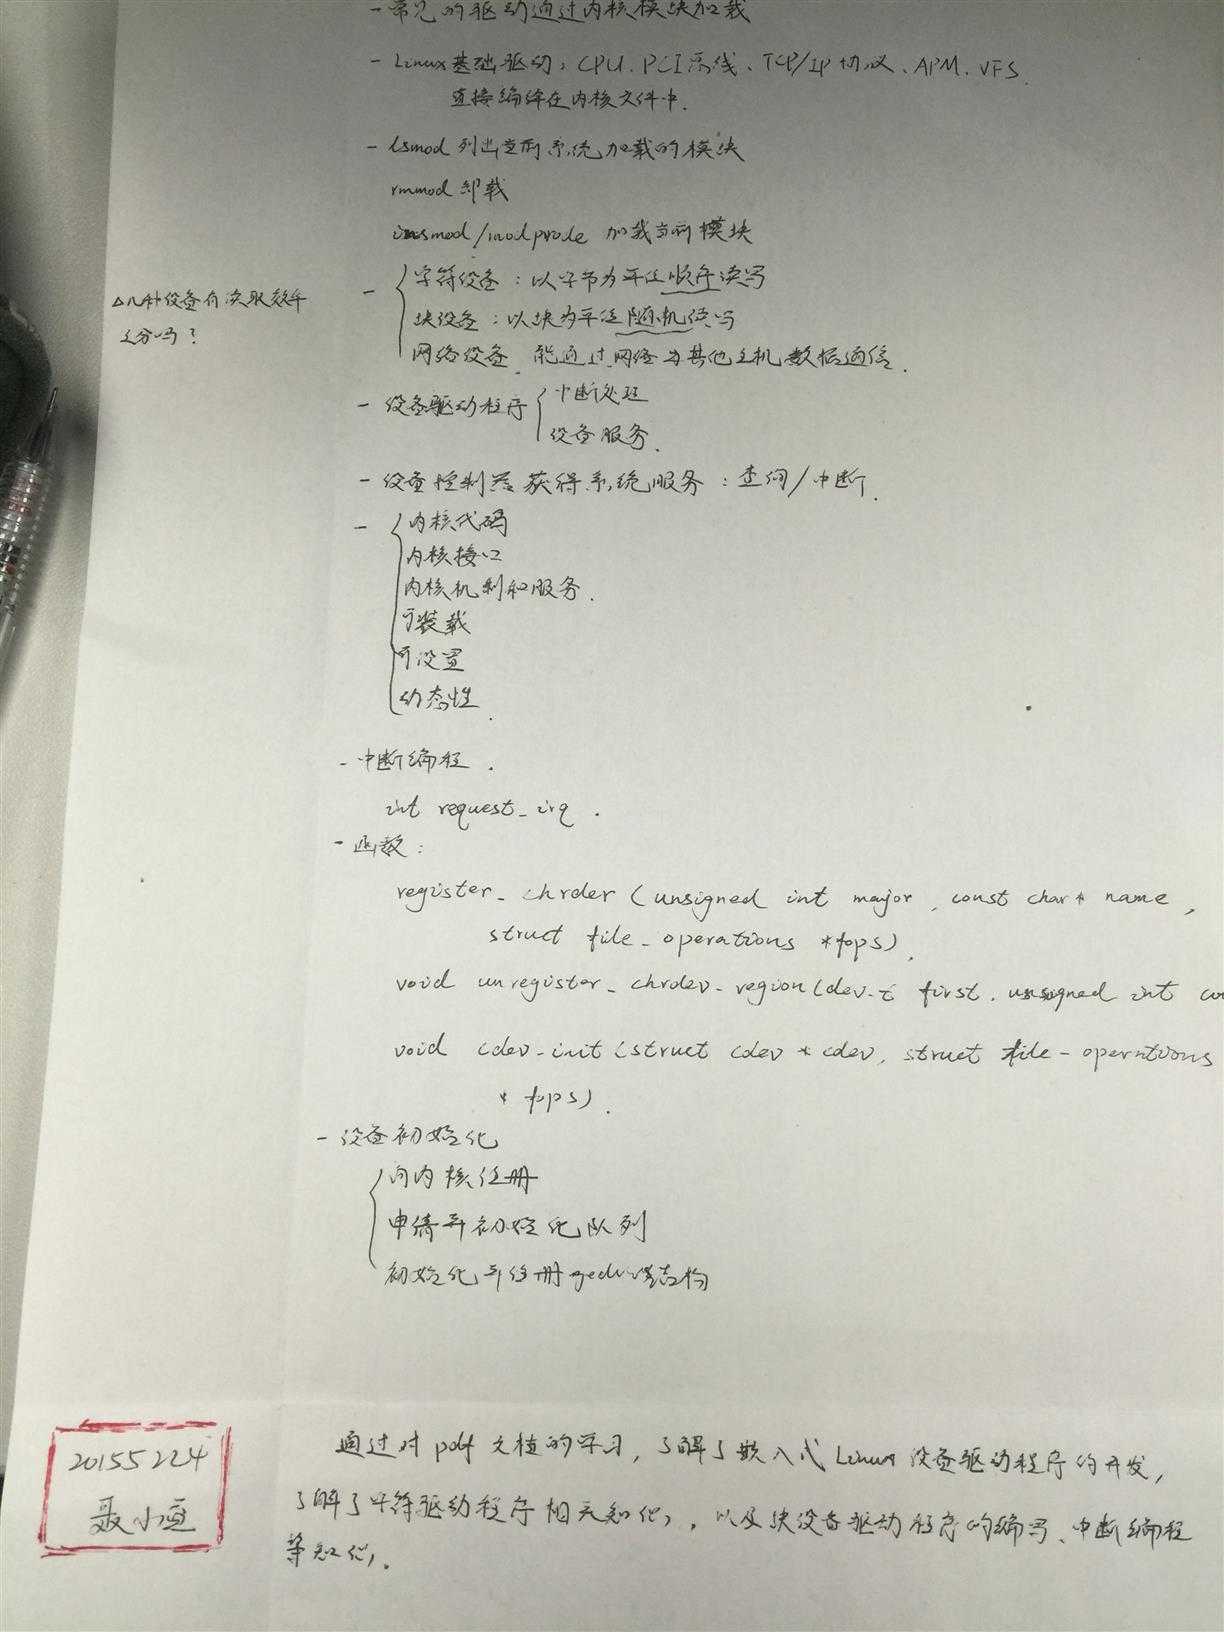 - 常见的驱动通过内核模块加载
- Linux基础驱动：CPU、PCI总线、TCP/IP协议、APM、VFS
直接编译在内核文件中.
- lsmod 列出当前系统加载的模块
rmmod 卸载
insmod/modprode 加载当前模块
- 字符设备：以字节为单位顺序读写
块设备：以块为单位随机读写
网络设备 能通过网络与其他主机数据通信.
△几种设备有读取效率
之分吗？
- 设备驱动程序 中断处理
设备服务.
- 设备控制器获得系统服务：查询/中断.
- 内核代码
内核接口
内核机制和服务.
可装载
可设置
动态性.
- 中断编程.
int request_irq.
- 函数：
register_chrder (unsigned int major, const char* name,
struct file_operations *fops).
void unregister_chrdev_region(dev_t first, unsigned int cou
void cdev_init (struct cdev * cdev, struct file_operations
* fops).
- 设备初始化
向内核注册
申请并初始化队列
初始化并注册 结构
20155224
聂小益
通过对pdf文档的学习，了解了嵌入式Linux设备驱动程序的开发，
了解了字符驱动程序相关知识，以及块设备驱动程序的编写、中断编程
等知识.